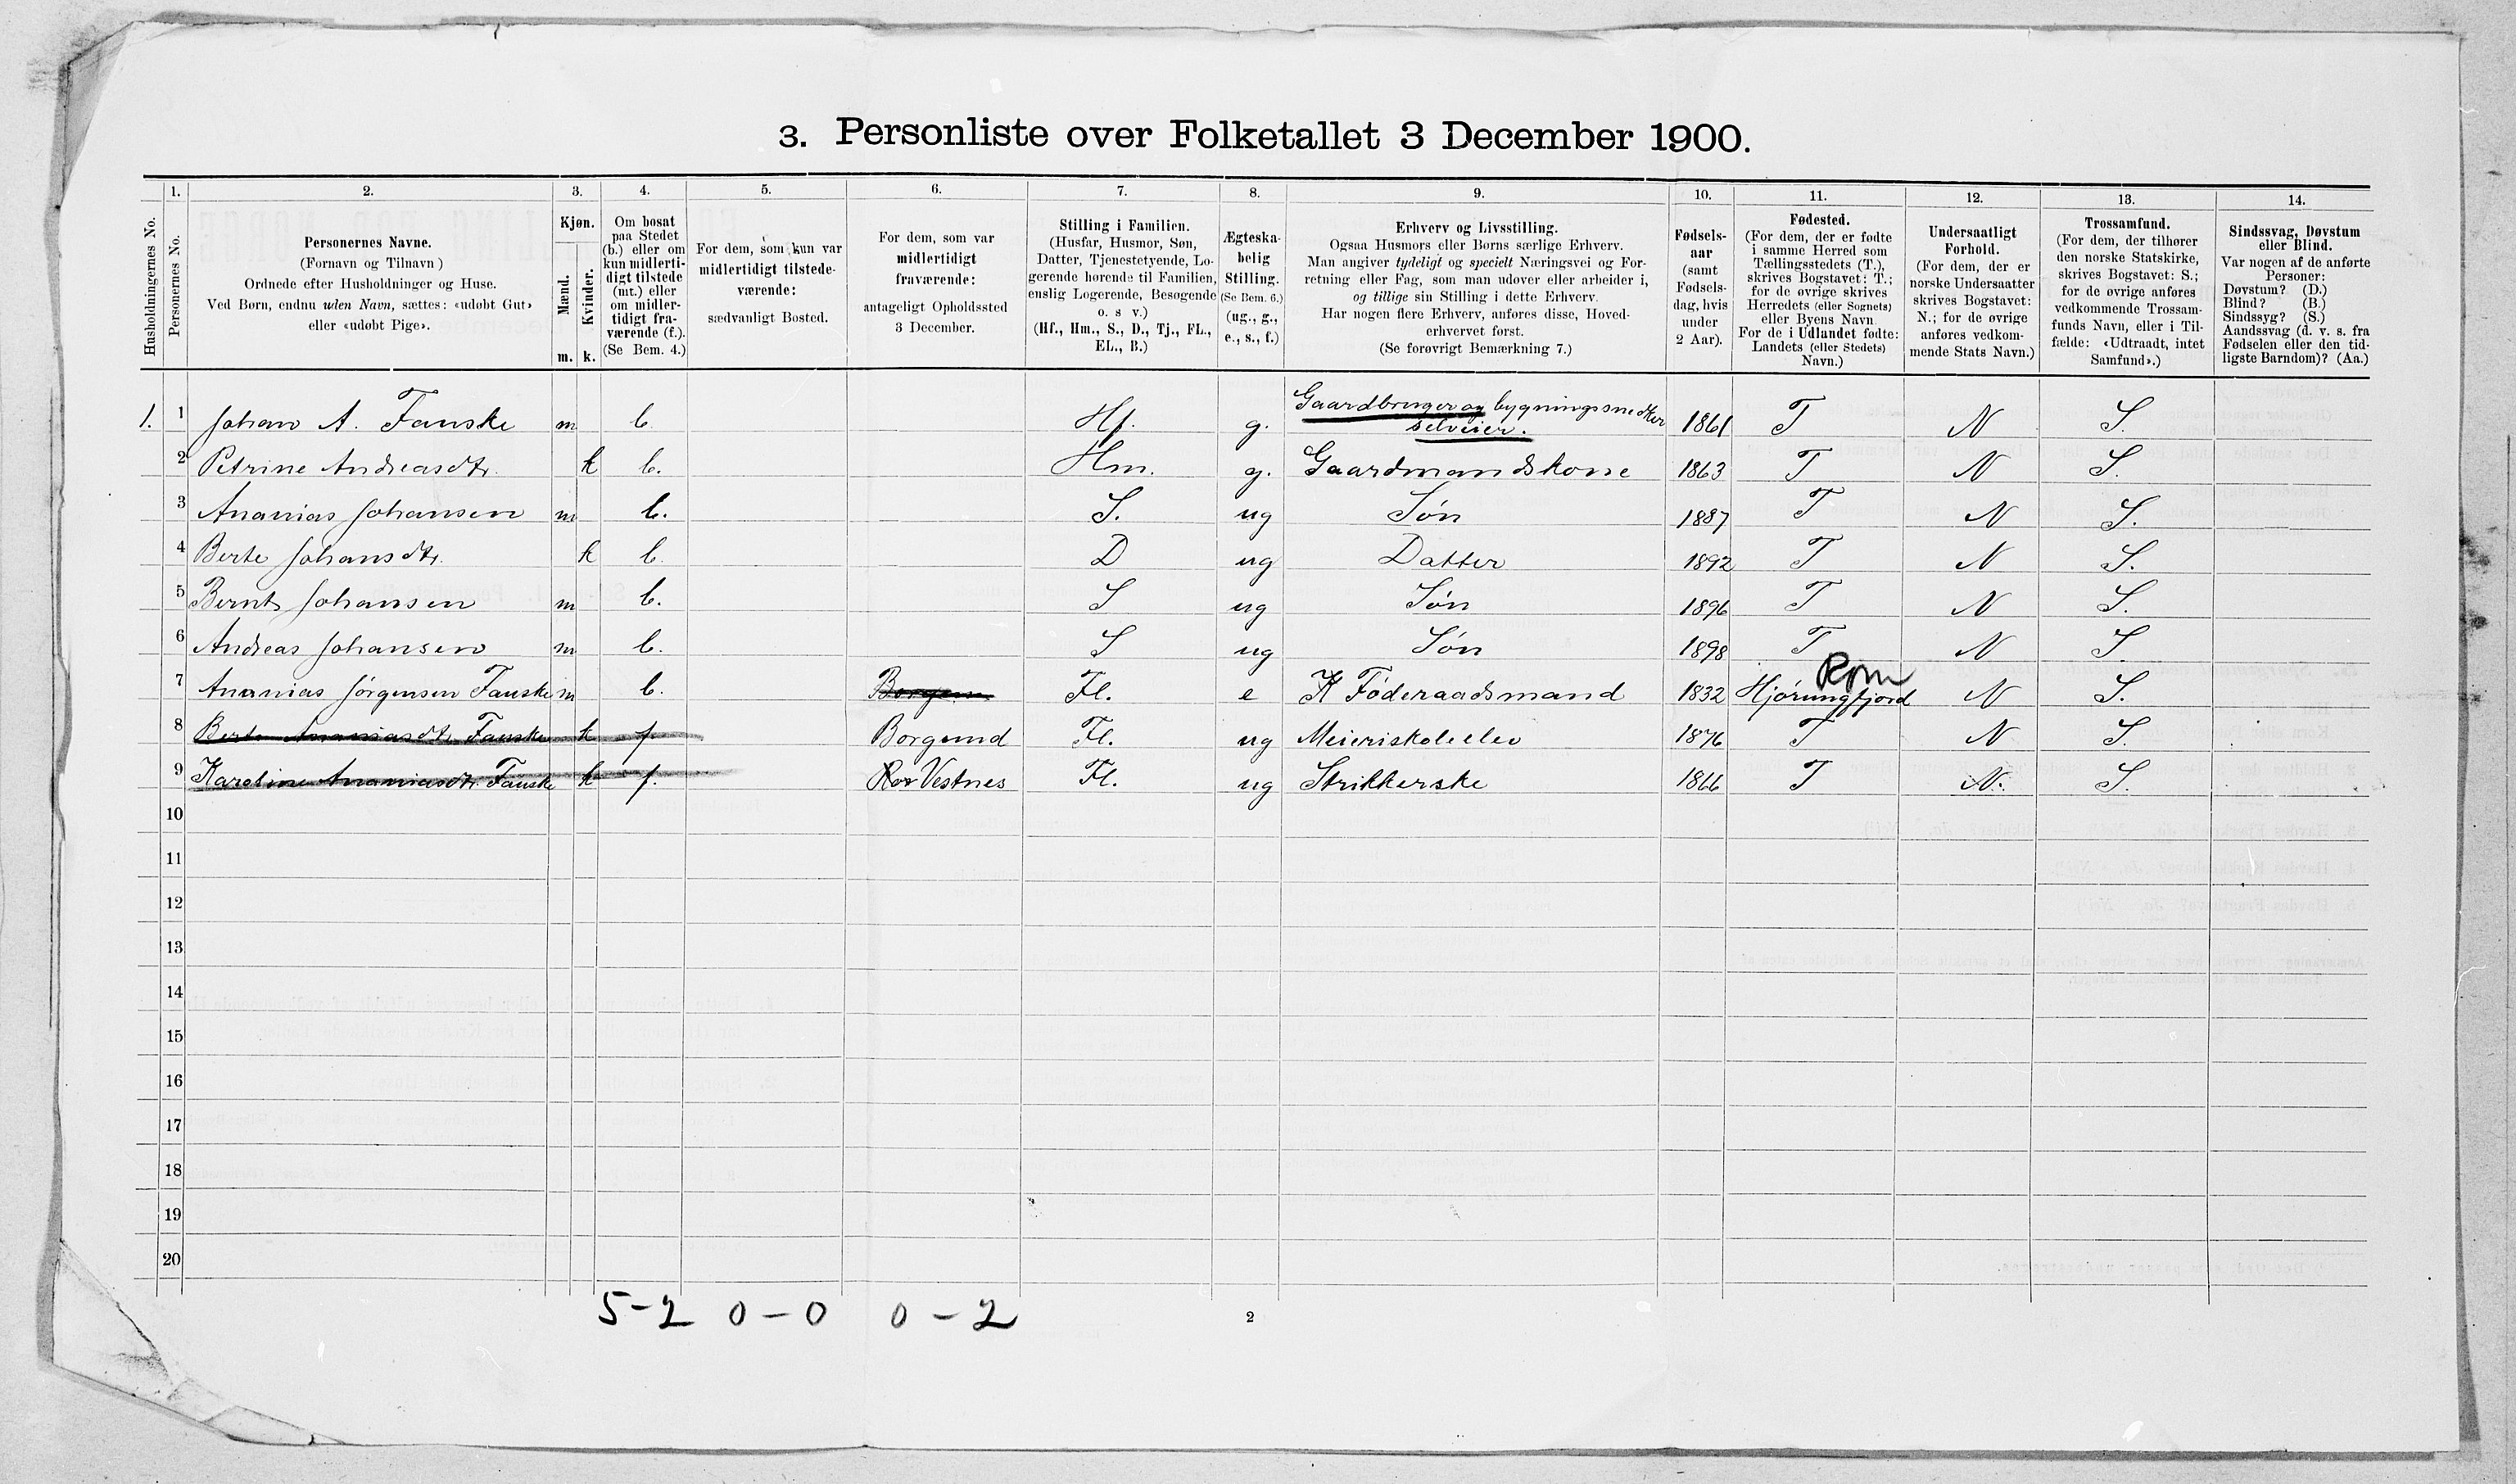 3. Personliste over Folketallet 3 December 1900.
1. 2. 3. 4. 5. 6. 7. 8. 9. 10. 11. 12. 13. 14.
Husholdningernes No.
Personernes No.
Personernes Navne.
(Fornavn og Tilnavn)
Ordnede efter Husholdninger og Huse.
Ved Børn, endnu uden Navn, sættes: «udøbt Gut»
eller «udøbt Pige».
Kjøn.
Mænd.
Kvinder.
m. k.
Om bosat
paa Stedet
(b.) eller om
kun midlerti-
digt tilstede
(mt.) eller
om midler-
tidigt fra-
værende (f.).
(Se Bem. 4.)
For dem, som kun var
midlertidigt tilstede-
værende:
sædvanligt Bosted.
For dem, som var
midlertidigt
fraværende:
antageligt Opholdssted
3 December.
Stilling i Familien.
(Husfar, Husmor, Søn,
Datter, Tjenestetyende, Lo-
gerende hørende til Familien,
enslig Logerende, Besøgende
o. s v.)
(Hf., Hm., S., D., Tj., FL.,
EL., B.)
Ægteska-
belig
Stilling.
(Se Bem. 6.)
(ug., g.,
e., s., f.)
Erhverv og Livsstilling.
Ogsaa Husmors eller Børns særlige Erhverv.
Man angiver tydeligt og specielt Næringsvei og For-
retning eller Fag, som man udover eller arbeider i,
og tillige sin Stilling i dette Erhverv.
Har nogen flere Erhverv, anføres disse, Hoved-
erhvervet først.
(Se forøvrigt Bemærkning 7.)
Fødsels-
aar
(samt
Fødsels-
dag, hvis
under
2 Aar).
Fødested.
(For dem, der er fødte
i samme Herred som
Tællingsstedets (T.),
skrives Bogstavet: T.;
for de øvrige skrives
Herredets (eller Sognets)
eller Byens Navn
For de i Udlandet fødte:
Landets (eller Stedets)
Navn.)
Undersaatligt
Forhold.
(For dem, der er
norske Undersaatter
skrives Bogstavet:
N.; for de øvrige
anføres vedkom-
mende Stats Navn.)
Trossamfund.
(For dem, der tilhører
den norske Statskirke,
skrives Bogstavet: S.;
for de øvrige anføres
vedkommende Trossam-
funds Navn, eller i Til-
fælde: «Udtraadt, intet
Samfund».)
Sindssvag, Døvstum
eller Blind.
Var nogen af de anførte
Personer:
Døvstum? (D.)
Blind? (B.)
Sindssyg? (S.)
Aandssvag (d. v. s. fra
Fødselen eller den tid-
ligste Barndom)? (Aa.)
1. 1 Johan A. Fauske m b. Hf. g. Gaardbruger og bygningssnedker selveier. 1861 T N S.
2 Petrine Andreasdtr. k b. Hm. g. Gaardmandskone 1863 T N S.
3 Ananias Johansen m b. S. ug Søn 1887 T N S.
4 Berte Johansdtr. k b. D ug Datter 1892 T N S.
5 Bernt Johansen m b. S ug Søn 1896 T N S.
6 Andreas Johansen m b. S ug Søn 1898 T N S.
Rom
7 Ananias Jørgensen Fauske m b. Fl. e K Føderaadsmand 1832 Hjørungfjord N S.
8 Berte Ananiasdtr. Fauske k f. Borgund Fl. ug Meieriskoleelev 1876 T N S.
9 Karoline Ananiasdtr. Fauske k f. Vestnes Fl. ug Strikkerske 1866 T N. S.
10
11
12
13
14
15
16
17
18
19
20
5-2 0-0 0-2 2